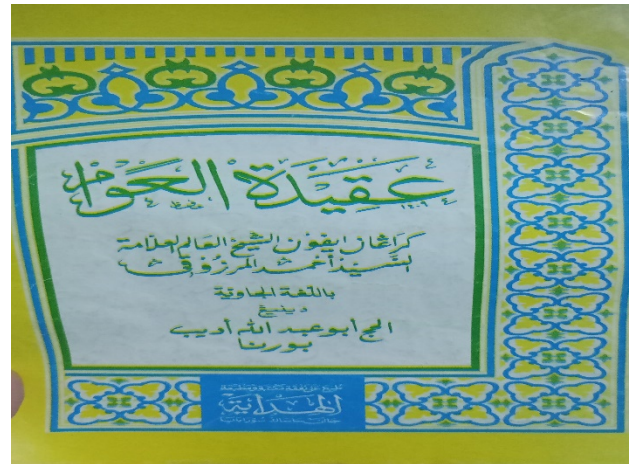 عقيدة العوام
كراڠان ايفون الشيخ العالم العلامة
السيد أحمد المرزوقي
باللغة الجاوية
دينيڠ
الحج أبو عبد الله أديب
بورنا
الهداية